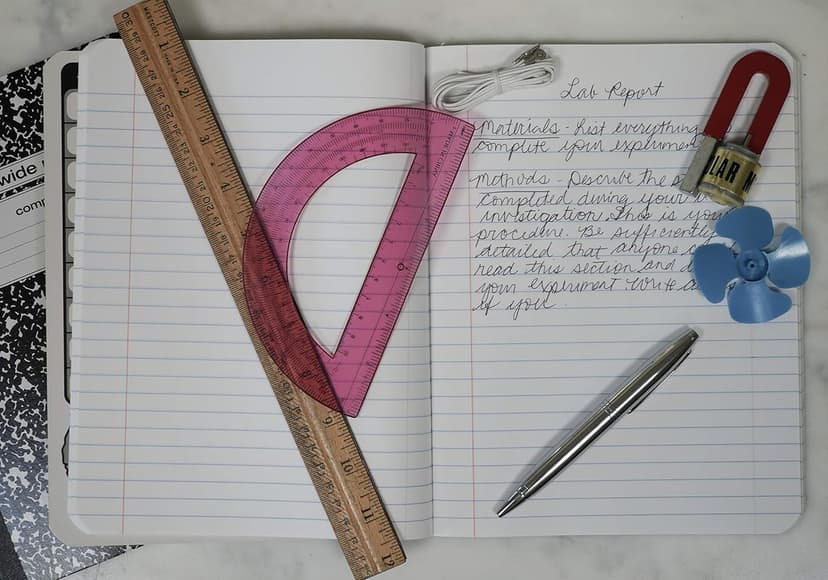 wide
comp
Lab Report
Materials - List everything
complete your experimen
Methods - Describe the s
completed during your
investigation. This is you
procedure. Be sufficiently
detailed that anyone c
read this section and d
your experiment. Write a
if you
LAR M
1
2
3
4
9
10
11
12
30